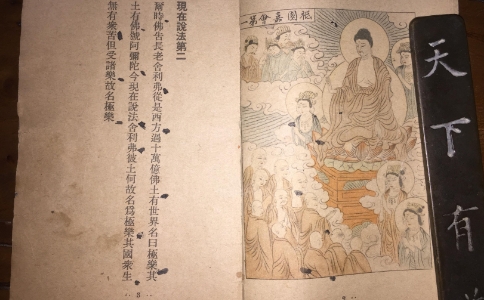 天下有
祇園嘉會第一
現在說法第二
爾時佛告長老舍利弗從是西方過十萬億佛土有世界名曰極樂其
土有佛號阿彌陀今現在說法舍利弗彼土何故名爲極樂其國衆生
無有衆苦但受諸樂故名極樂